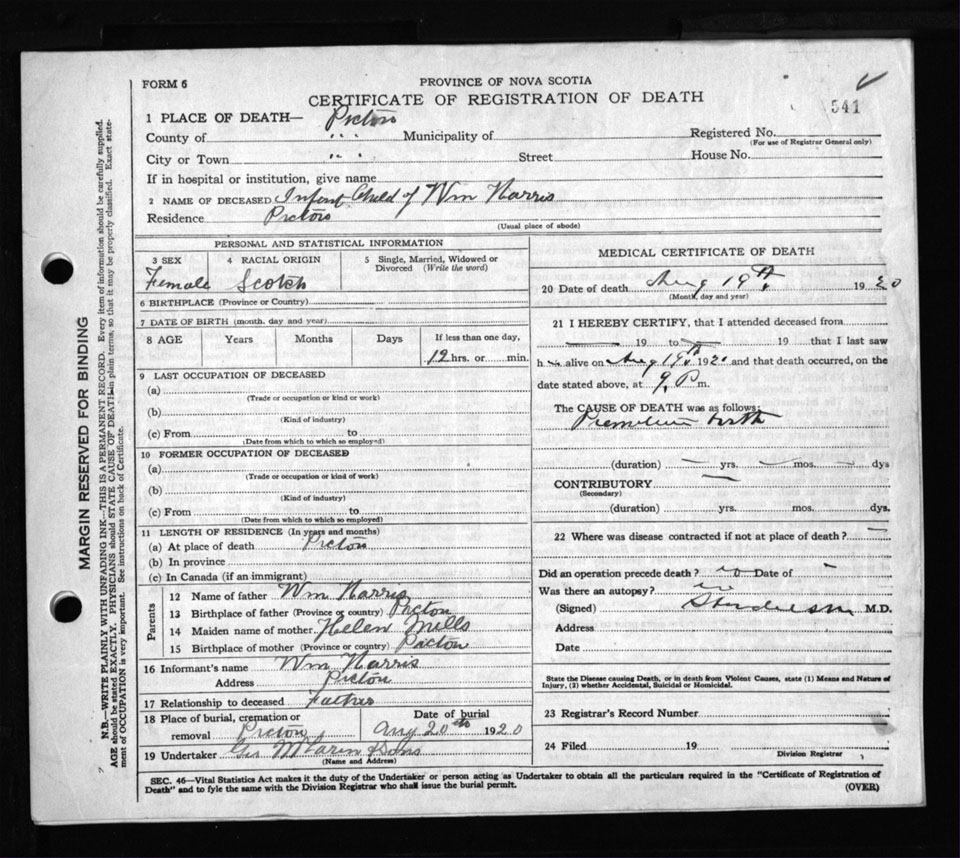 FORM 6
PROVINCE OF NOVA SCOTIA
CERTIFICATE OF REGISTRATION OF DEATH
541
1 PLACE OF DEATH— Pictou
County of " " " Municipality of
Registered No.
(For use of Registrar General only)
City or Town " " " Street House No.
If in hospital or institution, give name
2 NAME OF DECEASED Infant Child of Wm Harris
Residence Pictou
(Usual place of abode)
PERSONAL AND STATISTICAL INFORMATION
3 SEX 4 RACIAL ORIGIN 5 Single, Married, Widowed or Divorced (Write the word)
Female Scotch
6 BIRTHPLACE (Province or Country)
7 DATE OF BIRTH (month, day and year)
8 AGE Years Months Days If less than one day,
12 hrs. or min.
9 LAST OCCUPATION OF DECEASED
(a)
(Trade or occupation or kind or work)
(b)
(Kind of industry)
(c) From to
(Date from which to which so employed)
10 FORMER OCCUPATION OF DECEASED
(a)
(Trade or occupation or kind of work)
(b)
(Kind of industry)
(c) From to
(Date from which to which so employed)
11 LENGTH OF RESIDENCE (In years and months)
(a) At place of death Pictou
(b) In province
(c) In Canada (if an immigrant)
Parents
12 Name of father Wm Harris
13 Birthplace of father (Province or country) Pictou
14 Maiden name of mother Helen Mills
15 Birthplace of mother (Province or country) Pictou
16 Informant's name Wm Harris
Address Pictou
17 Relationship to deceased Father
18 Place of burial, cremation or removal Pictou
Date of burial
Aug 20th 1920
19 Undertaker Sons
(Name and Address)
MEDICAL CERTIFICATE OF DEATH
20 Date of death Aug 19th 1920
(Month, day and year)
21 I HEREBY CERTIFY, that I attended deceased from
19 to 19 that I last saw
h alive on Aug 19th 1920 and that death occurred, on the
date stated above, at 9 P m.
The CAUSE OF DEATH was as follows:
Premature birth
(duration) yrs. mos. dys
CONTRIBUTORY
(Secondary)
(duration) yrs. mos. dys.
22 Where was disease contracted if not at place of death?
Did an operation precede death? no Date of –
Was there an autopsy? no
(Signed) M.D.
Address
Date
State the Disease causing Death, or in death from Violent Causes, state (1) Means and Nature of
Injury, (2) whether Accidental, Suicidal or Homicidal.
23 Registrar's Record Number
24 Filed 19
Division Registrar
SEC. 46—Vital Statistics Act makes it the duty of the Undertaker or person acting as Undertaker to obtain all the particulars required in the "Certificate of Registration of
Death" and to fyle the same with the Division Registrar who shall issue the burial permit. (OVER)
MARGIN RESERVED FOR BINDING
N.B.—WRITE PLAINLY WITH UNFADING INK—THIS IS A PERMANENT RECORD. Every item of information should be carefully supplied.
AGE should be stated EXACTLY. PHYSICIANS should STATE CAUSE OF DEATH in plain terms, so that it may be properly classified. Exact state-
ment of OCCUPATION is very important. See instructions on back of Certificate.